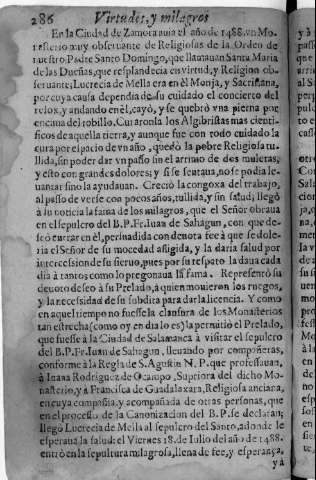 286 Virtudes, y milagros
En la Ciudad de Zamora auia el año de 1488. vn Mo-
nasterio muy obseruante de Religiosas de la Orden de
nuestro Padre Santo Domingo, que llamauan Santa Maria
de las Dueñas, que resplandecia en virtud, y Religion ob-
seruante; Lucrecia de Mella era en èl Monja, y Sacristana,
por cuya causa dependia de su cuidado el concierto del
relox, y andando en èl, cayò, y se quebrò vna pierna por
encima del tobillo. Curaronla los Algibristas mas cienti-
ficos de aquella tierra, y aunque fue con todo cuidado la
cura por espacio de vn año, quedò la pobre Religiosa tu-
llida, sin poder dar vn passo sin el arrimo de dos muletas,
y esto con grandes dolores; y si se sentaua, no se podia le-
uantar sino la ayudauan. Creciò la congoxa del trabajo,
al passo de verse con pocos años, tullida, y sin salud; llegò
à su noticia la fama de los milagros, que el Señor obraua
en el sepulcro del B. P. Fr. Iuan de Sahagun, con que de-
seò entrar en èl, persuadida con deuota fee à que se dole-
ria el Señor de su mocedad afligida, y la daria salud por
intercession de su sieruo, pues por su respeto la daua cada
dia à tantos como lo pregonaua la fama. Representò su
deuoto deseo à su Prelado, à quien mouieron los ruegos,
y la necessidad de su subdita para dar la licencia. Y como
en aquel tiempo no fuesse la clausura de los Monasterios
tan estrecha (como oy en dia lo es) la permitiò el Prelado,
que fuesse à la Ciudad de Salamanca à visitar el sepulcro
del B. P. Fr. Iuan de Sahagun, lleuando por compañeras,
conforme à la Regla de S. Agustin N. P. que professauan,
à Iuana Rodriguez de Ocampo, Supriora del dicho Mo-
nasterio, y à Francisca de Guadalaxara, Religiosa anciana,
en cuya compañia, y acompañada de otras personas, que
en el processo de la Canonizacion del B. P. se declaran,
llegò Lucrecia de Mella al sepulcro del Santo, adonde le
esperaua la salud: el Viernes 18. de Iulio del año de 1488.
entrò en la sepultura milagrosa, llena de fee, y esperança,
yà